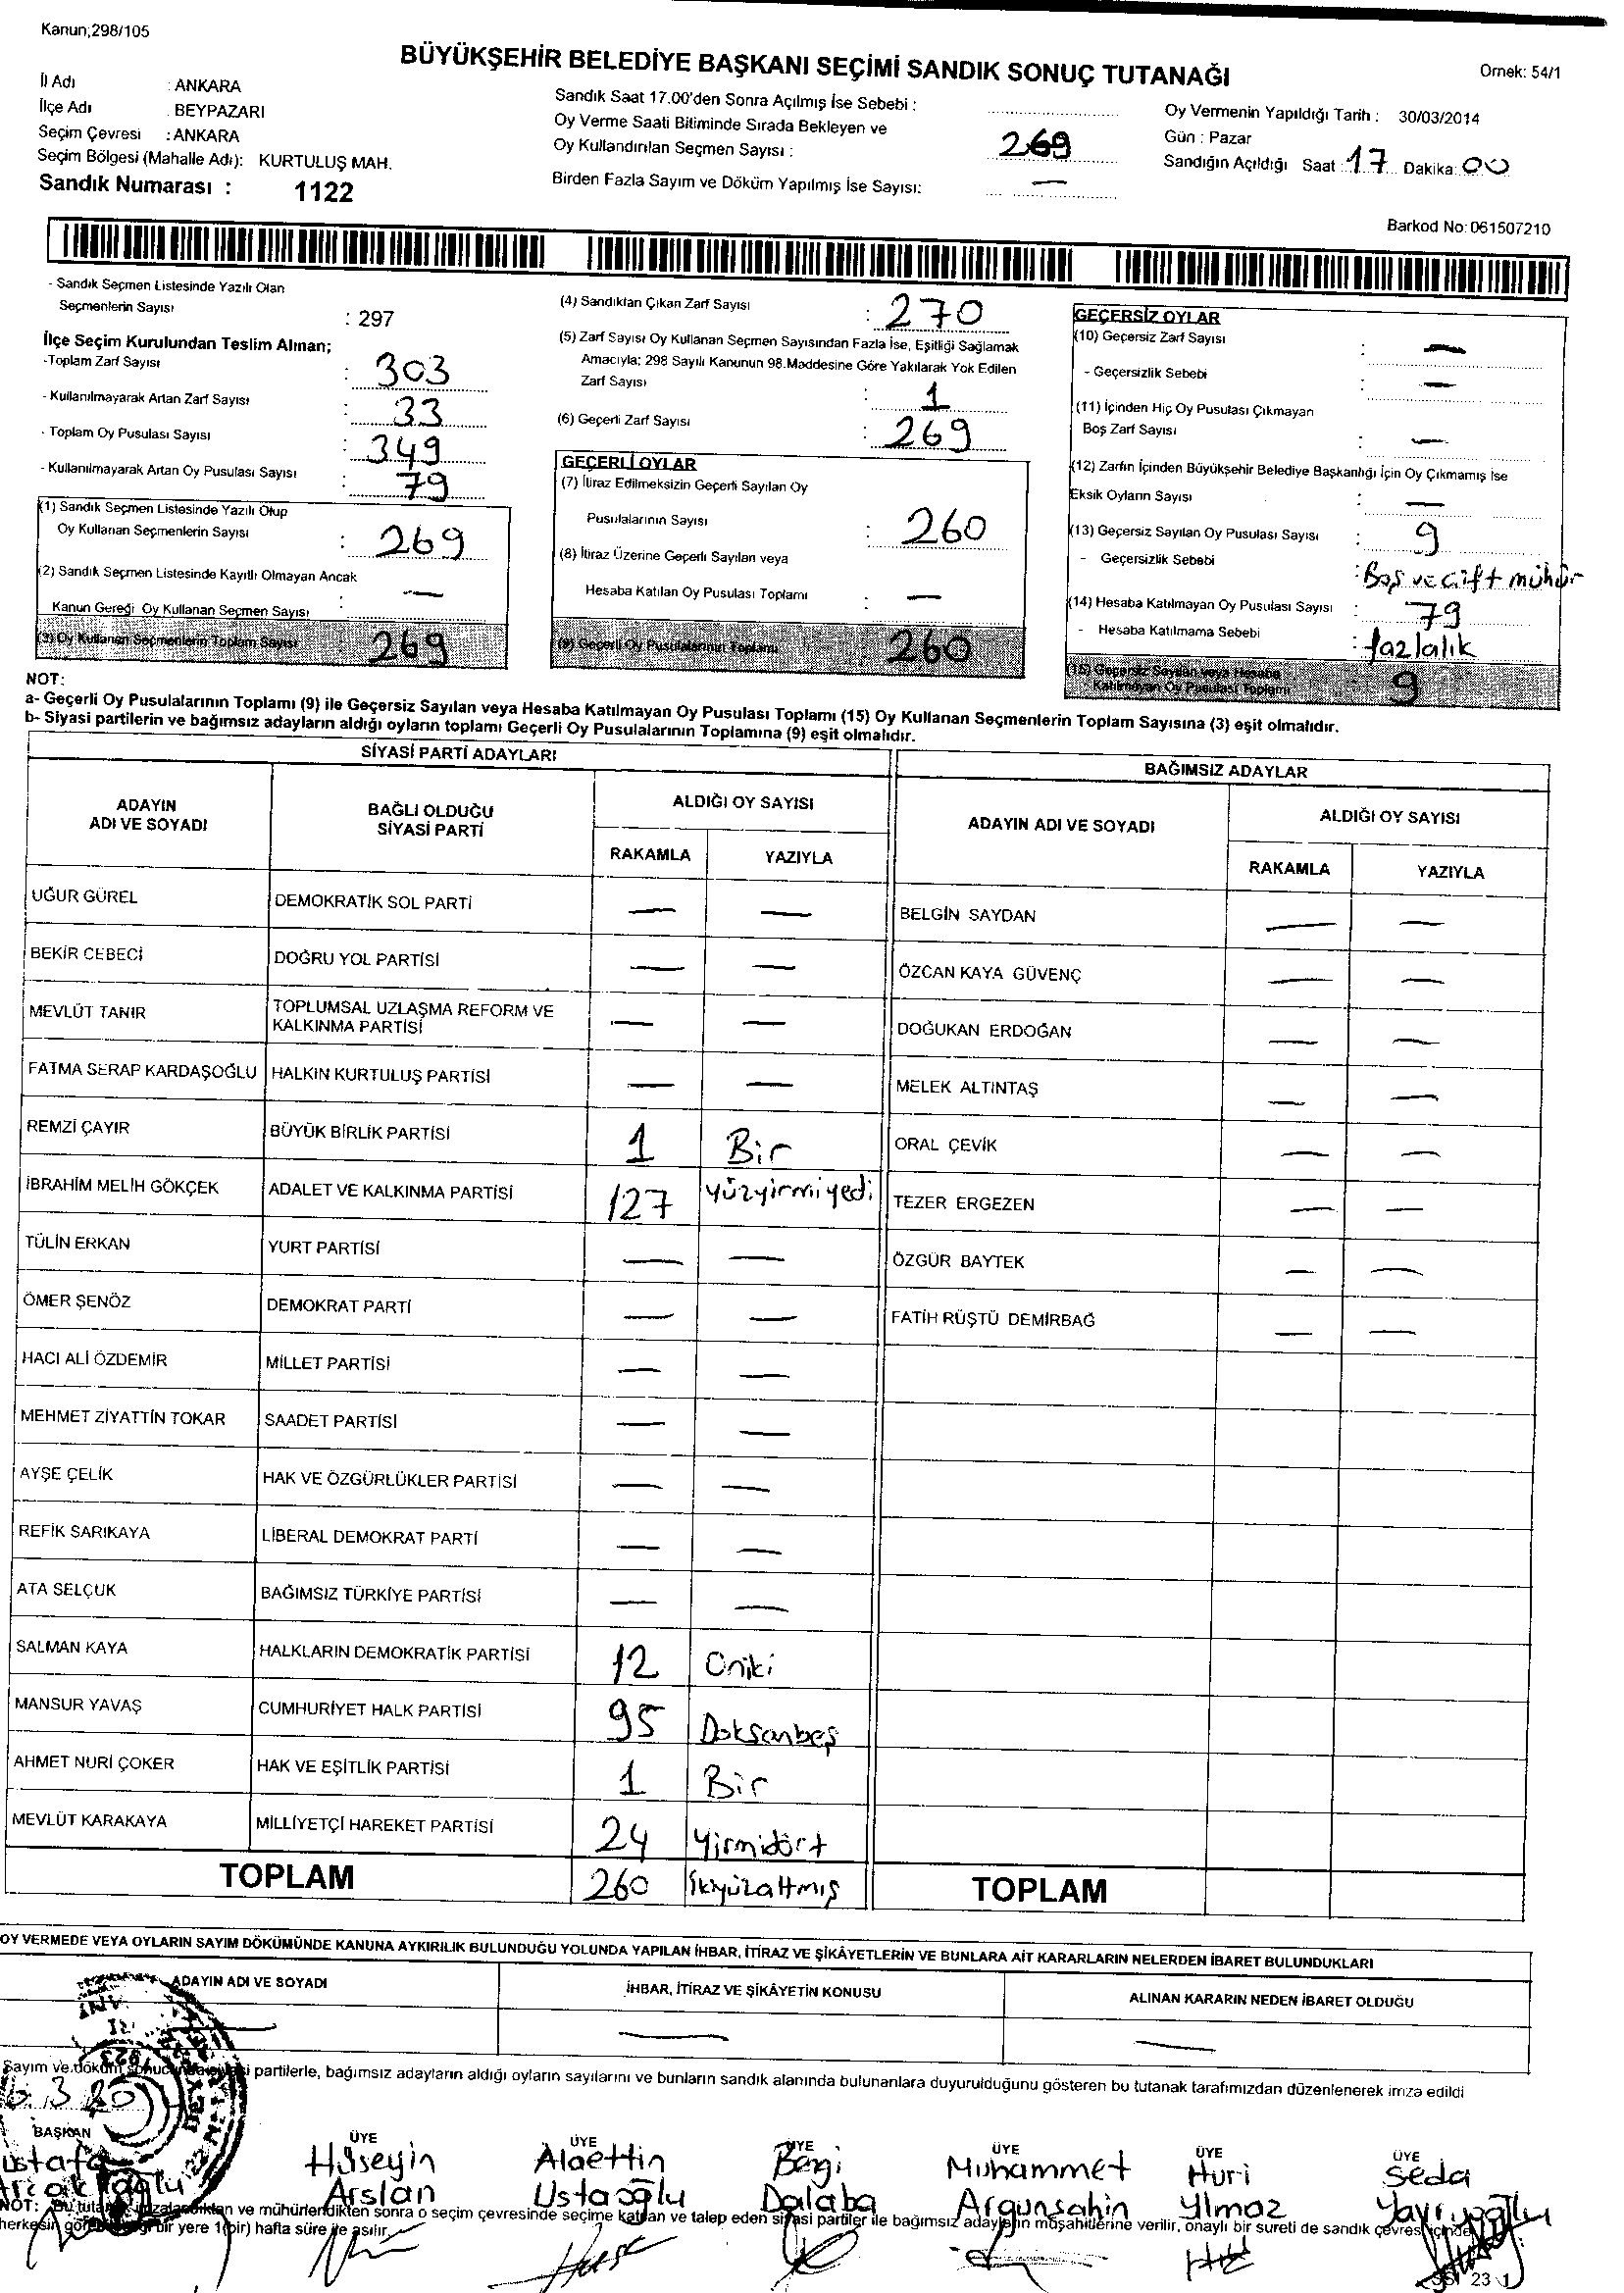 Kanun;298/105
BÜYÜKŞEHİR BELEDİYE BAŞKANI SEÇİMİ SANDIK SONUÇ TUTANAĞI
Örnek: 54/1
İl Adı : ANKARA
İlçe Adı : BEYPAZARI
Seçim Çevresi : ANKARA
Seçim Bölgesi (Mahalle Adı): KURTULUŞ MAH.
Sandık Numarası : 1122
Sandık Saat 17.00'den Sonra Açılmış İse Sebebi :
Oy Verme Saati Bitiminde Sırada Bekleyen ve
Oy Kullandırılan Seçmen Sayısı : 269
Birden Fazla Sayım ve Döküm Yapılmış İse Sayısı: —
Oy Vermenin Yapıldığı Tarih : 30/03/2014
Gün : Pazar
Sandığın Açıldığı Saat : 17 Dakika: 00
Barkod No: 061507210
- Sandık Seçmen Listesinde Yazılı Olan
Seçmenlerin Sayısı : 297
İlçe Seçim Kurulundan Teslim Alınan;
-Toplam Zarf Sayısı : 303
- Kullanılmayarak Artan Zarf Sayısı : 33
- Toplam Oy Pusulası Sayısı : 349
- Kullanılmayarak Artan Oy Pusulası Sayısı : 79
(1) Sandık Seçmen Listesinde Yazılı Olup
Oy Kullanan Seçmenlerin Sayısı : 269
(2) Sandık Seçmen Listesinde Kayıtlı Olmayan Ancak
Kanun Gereği Oy Kullanan Seçmen Sayısı : —
(3) Oy Kullanan Seçmenlerin Toplam Sayısı : 269
(4) Sandıktan Çıkan Zarf Sayısı : 270
(5) Zarf Sayısı Oy Kullanan Seçmen Sayısından Fazla İse, Eşitliği Sağlamak
Amacıyla; 298 Sayılı Kanunun 98.Maddesine Göre Yakılarak Yok Edilen
Zarf Sayısı : 1
(6) Geçerli Zarf Sayısı : 269
GEÇERLİ OYLAR
(7) İtiraz Edilmeksizin Geçerli Sayılan Oy
Pusulalarının Sayısı : 260
(8) İtiraz Üzerine Geçerli Sayılan veya
Hesaba Katılan Oy Pusulası Toplamı : —
(9) Geçerli Oy Pusulalarının Toplamı 260
GEÇERSİZ OYLAR
(10) Geçersiz Zarf Sayısı : —
- Geçersizlik Sebebi : —
(11) İçinden Hiç Oy Pusulası Çıkmayan
Boş Zarf Sayısı : —
(12) Zarfın İçinden Büyükşehir Belediye Başkanlığı İçin Oy Çıkmamış İse
Eksik Oyların Sayısı : —
(13) Geçersiz Sayılan Oy Pusulası Sayısı : 9
- Geçersizlik Sebebi : Boş ve Çift mühür
(14) Hesaba Katılmayan Oy Pusulası Sayısı : 79
- Hesaba Katılmama Sebebi : fazlalık
(15) Geçersiz Sayılan veya Hesaba
Katılmayan Oy Pusulası Toplamı 9
NOT:
a- Geçerli Oy Pusulalarının Toplamı (9) ile Geçersiz Sayılan veya Hesaba Katılmayan Oy Pusulası Toplamı (15) Oy Kullanan Seçmenlerin Toplam Sayısına (3) eşit olmalıdır.
b- Siyasi partilerin ve bağımsız adayların aldığı oyların toplamı Geçerli Oy Pusulalarının Toplamına (9) eşit olmalıdır.
SİYASİ PARTİ ADAYLARI
ADAYIN ADI VE SOYADI
BAĞLI OLDUĞU SİYASİ PARTİ
ALDIĞI OY SAYISI
RAKAMLA YAZIYLA
UĞUR GÜREL DEMOKRATİK SOL PARTİ — —
BEKİR CEBECİ DOĞRU YOL PARTİSİ — —
MEVLÜT TANIR TOPLUMSAL UZLAŞMA REFORM VE KALKINMA PARTİSİ — —
FATMA SERAP KARDAŞOĞLU HALKIN KURTULUŞ PARTİSİ — —
REMZİ ÇAYIR BÜYÜK BİRLİK PARTİSİ 1 Bir
İBRAHİM MELİH GÖKÇEK ADALET VE KALKINMA PARTİSİ 127 yüzyirmiyedi
TÜLİN ERKAN YURT PARTİSİ — —
ÖMER ŞENÖZ DEMOKRAT PARTİ — —
HACI ALİ ÖZDEMİR MİLLET PARTİSİ —
MEHMET ZİYATTİN TOKAR SAADET PARTİSİ — —
AYŞE ÇELİK HAK VE ÖZGÜRLÜKLER PARTİSİ — —
REFİK SARIKAYA LİBERAL DEMOKRAT PARTİ — —
ATA SELÇUK BAĞIMSIZ TÜRKİYE PARTİSİ — —
SALMAN KAYA HALKLARIN DEMOKRATİK PARTİSİ 12 Oniki
MANSUR YAVAŞ CUMHURİYET HALK PARTİSİ 95 Doksanbeş
AHMET NURİ ÇOKER HAK VE EŞİTLİK PARTİSİ 1 Bir
MEVLÜT KARAKAYA MİLLİYETÇİ HAREKET PARTİSİ 24 Yirmidört
TOPLAM 260 İkiyüzaltmış
BAĞIMSIZ ADAYLAR
ADAYIN ADI VE SOYADI
ALDIĞI OY SAYISI
RAKAMLA YAZIYLA
BELGİN SAYDAN — —
ÖZCAN KAYA GÜVENÇ — —
DOĞUKAN ERDOĞAN — —
MELEK ALTINTAŞ — —
ORAL ÇEVİK — —
TEZER ERGEZEN — —
ÖZGÜR BAYTEK — —
FATİH RÜŞTÜ DEMİRBAĞ — —
TOPLAM
OY VERMEDE VEYA OYLARIN SAYIM DÖKÜMÜNDE KANUNA AYKIRILIK BULUNDUĞU YOLUNDA YAPILAN İHBAR, İTİRAZ VE ŞİKÂYETLERİN VE BUNLARA AİT KARARLARIN NELERDEN İBARET BULUNDUKLARI
ADAYIN ADI VE SOYADI
İHBAR, İTİRAZ VE ŞİKÂYETİN KONUSU
ALINAN KARARIN NEDEN İBARET OLDUĞU
Sayım ve döküm partilerle, bağımsız adayların aldığı oyların sayılarını ve bunların sandık alanında bulunanlara duyurulduğunu gösteren bu tutanak tarafımızdan düzenlenerek imza edildi
BAŞKAN
ÜYE Hüseyin Arslan
ÜYE Alaettin Ustaoğlu
ÜYE Dalaba
ÜYE Muhammet Argunşahin
ÜYE Huri Yılmaz
ÜYE Seda
NOT: Bu tutanak imzalandıktan ve mühürlendikten sonra o seçim çevresinde seçime katılan ve talep eden siyasi partiler ile bağımsız adayların müşahitlerine verilir, onaylı bir sureti de sandık çevresi içinde
herkesin bir yere 1(bir) hafta süre ile asılır.
23